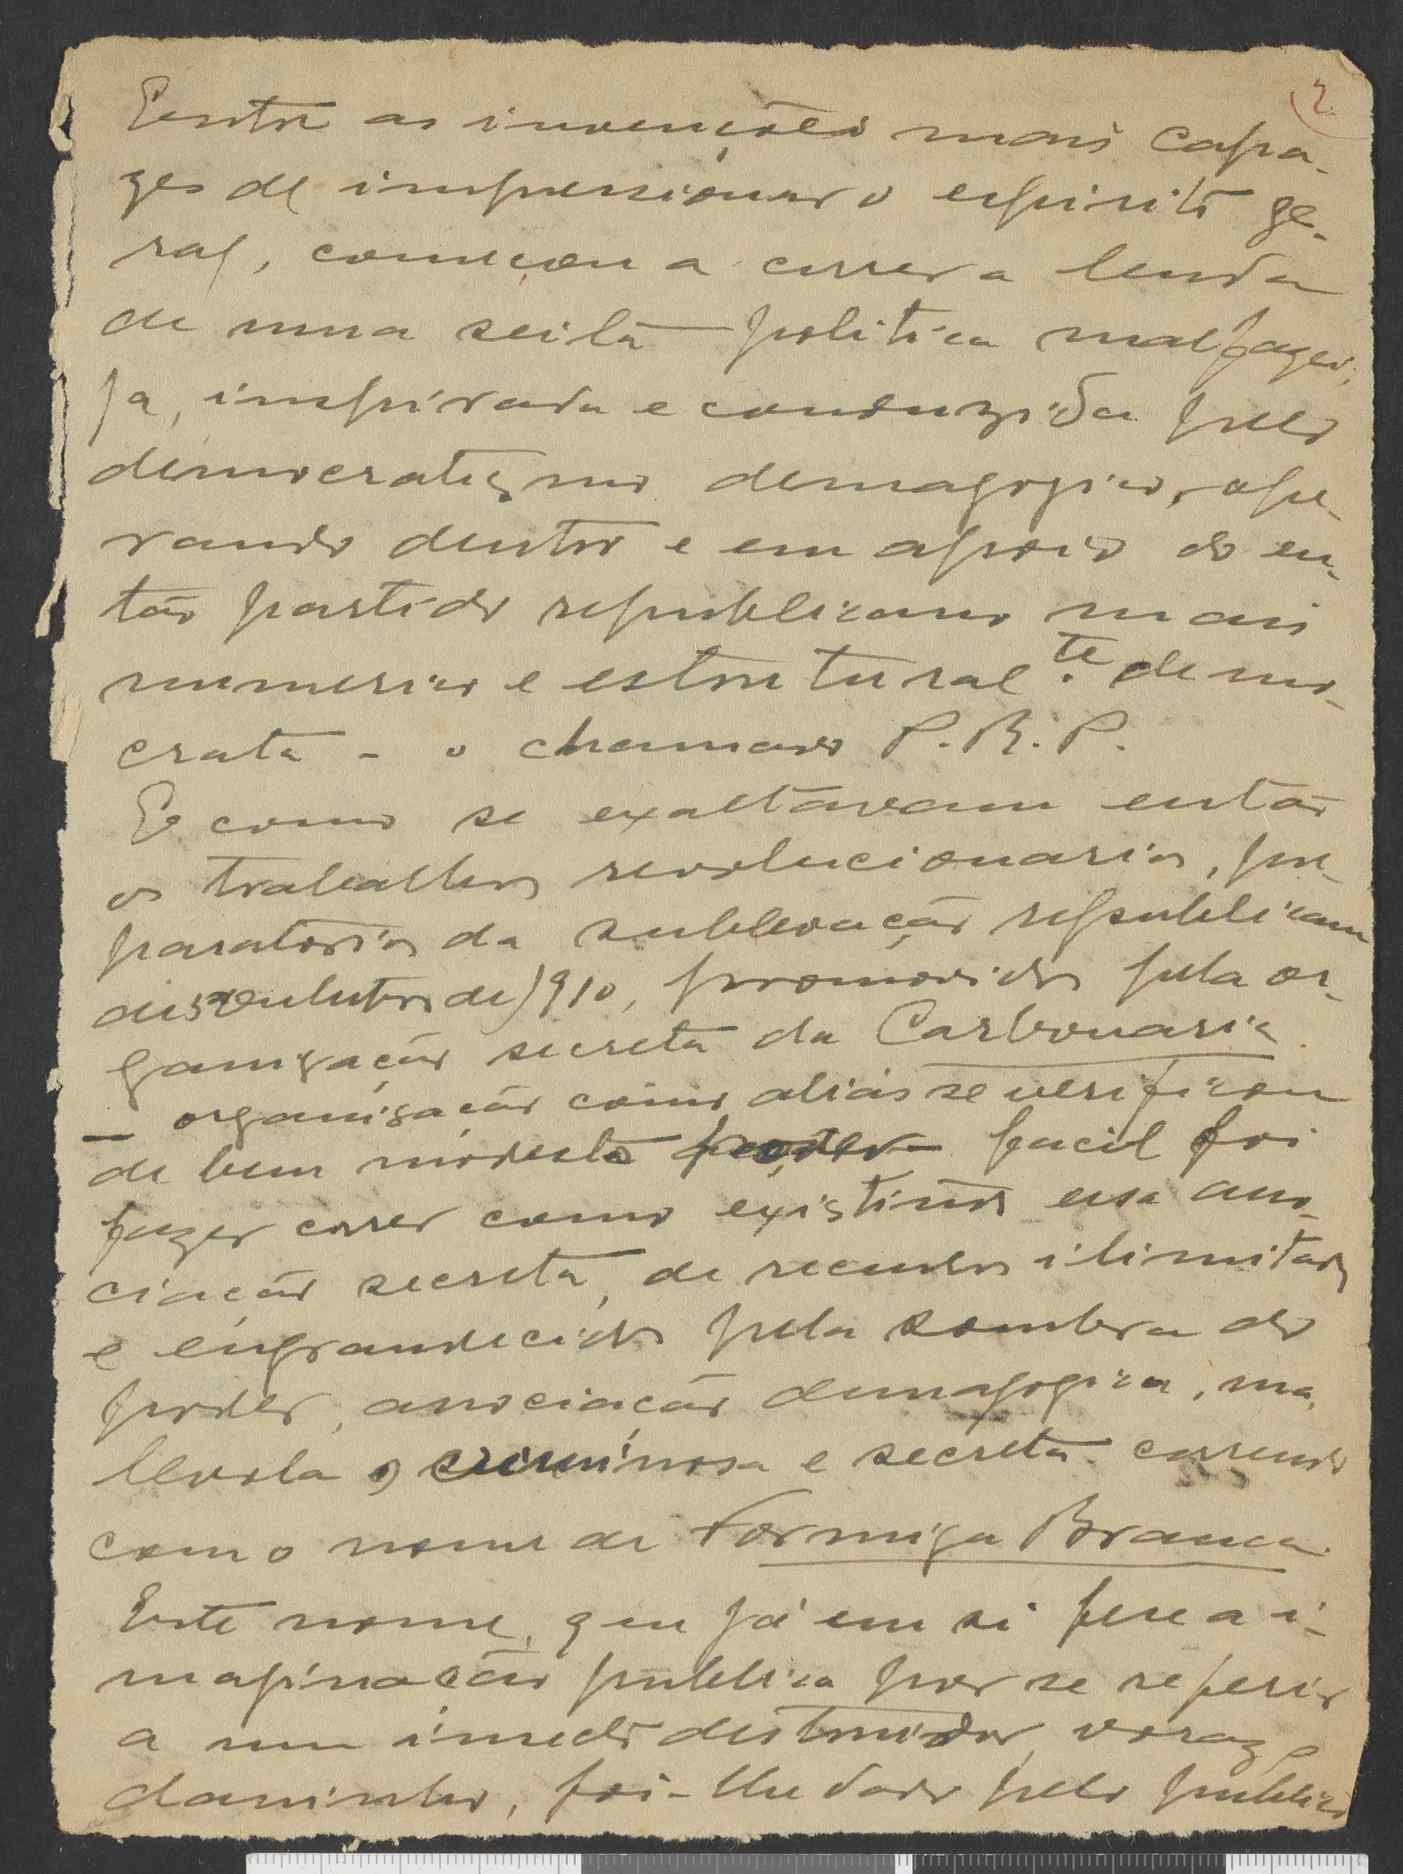 2
Entre as invenções mais capa-
zes de impressionar o espirito ge-
ral, começou a correr a lenda
de uma seita politica malfazei-
ja, inspirada e conduzida pelo
democratismo demagogico, ope-
rando dentro e em apoio do en-
tão partido republicano mais
numeroso e estrutural.te demo-
crata - o chamado P.R.P.
E como se exaltavam então
os trabalhos revolucionarios, pre-
paratorios da sublevação republicana
de outubro de 1910, promovidos pela or-
ganização secreta da Carbonaria
- organisação como aliás se verificou
de bem modesto poder - facil foi
fazer correr como existindo essa asso-
ciação secreta, de recursos ilimitados
e engrandecida pela sombra do
poder, associação demagogica, ma-
levola, criminosa e secreta correndo
com o nome de Formiga Branca.
Este nome, que já em si fere a i-
maginação publica por se referir
a um insecto destruidor, voraz e
daninho, foi-lhe dado pelo publico